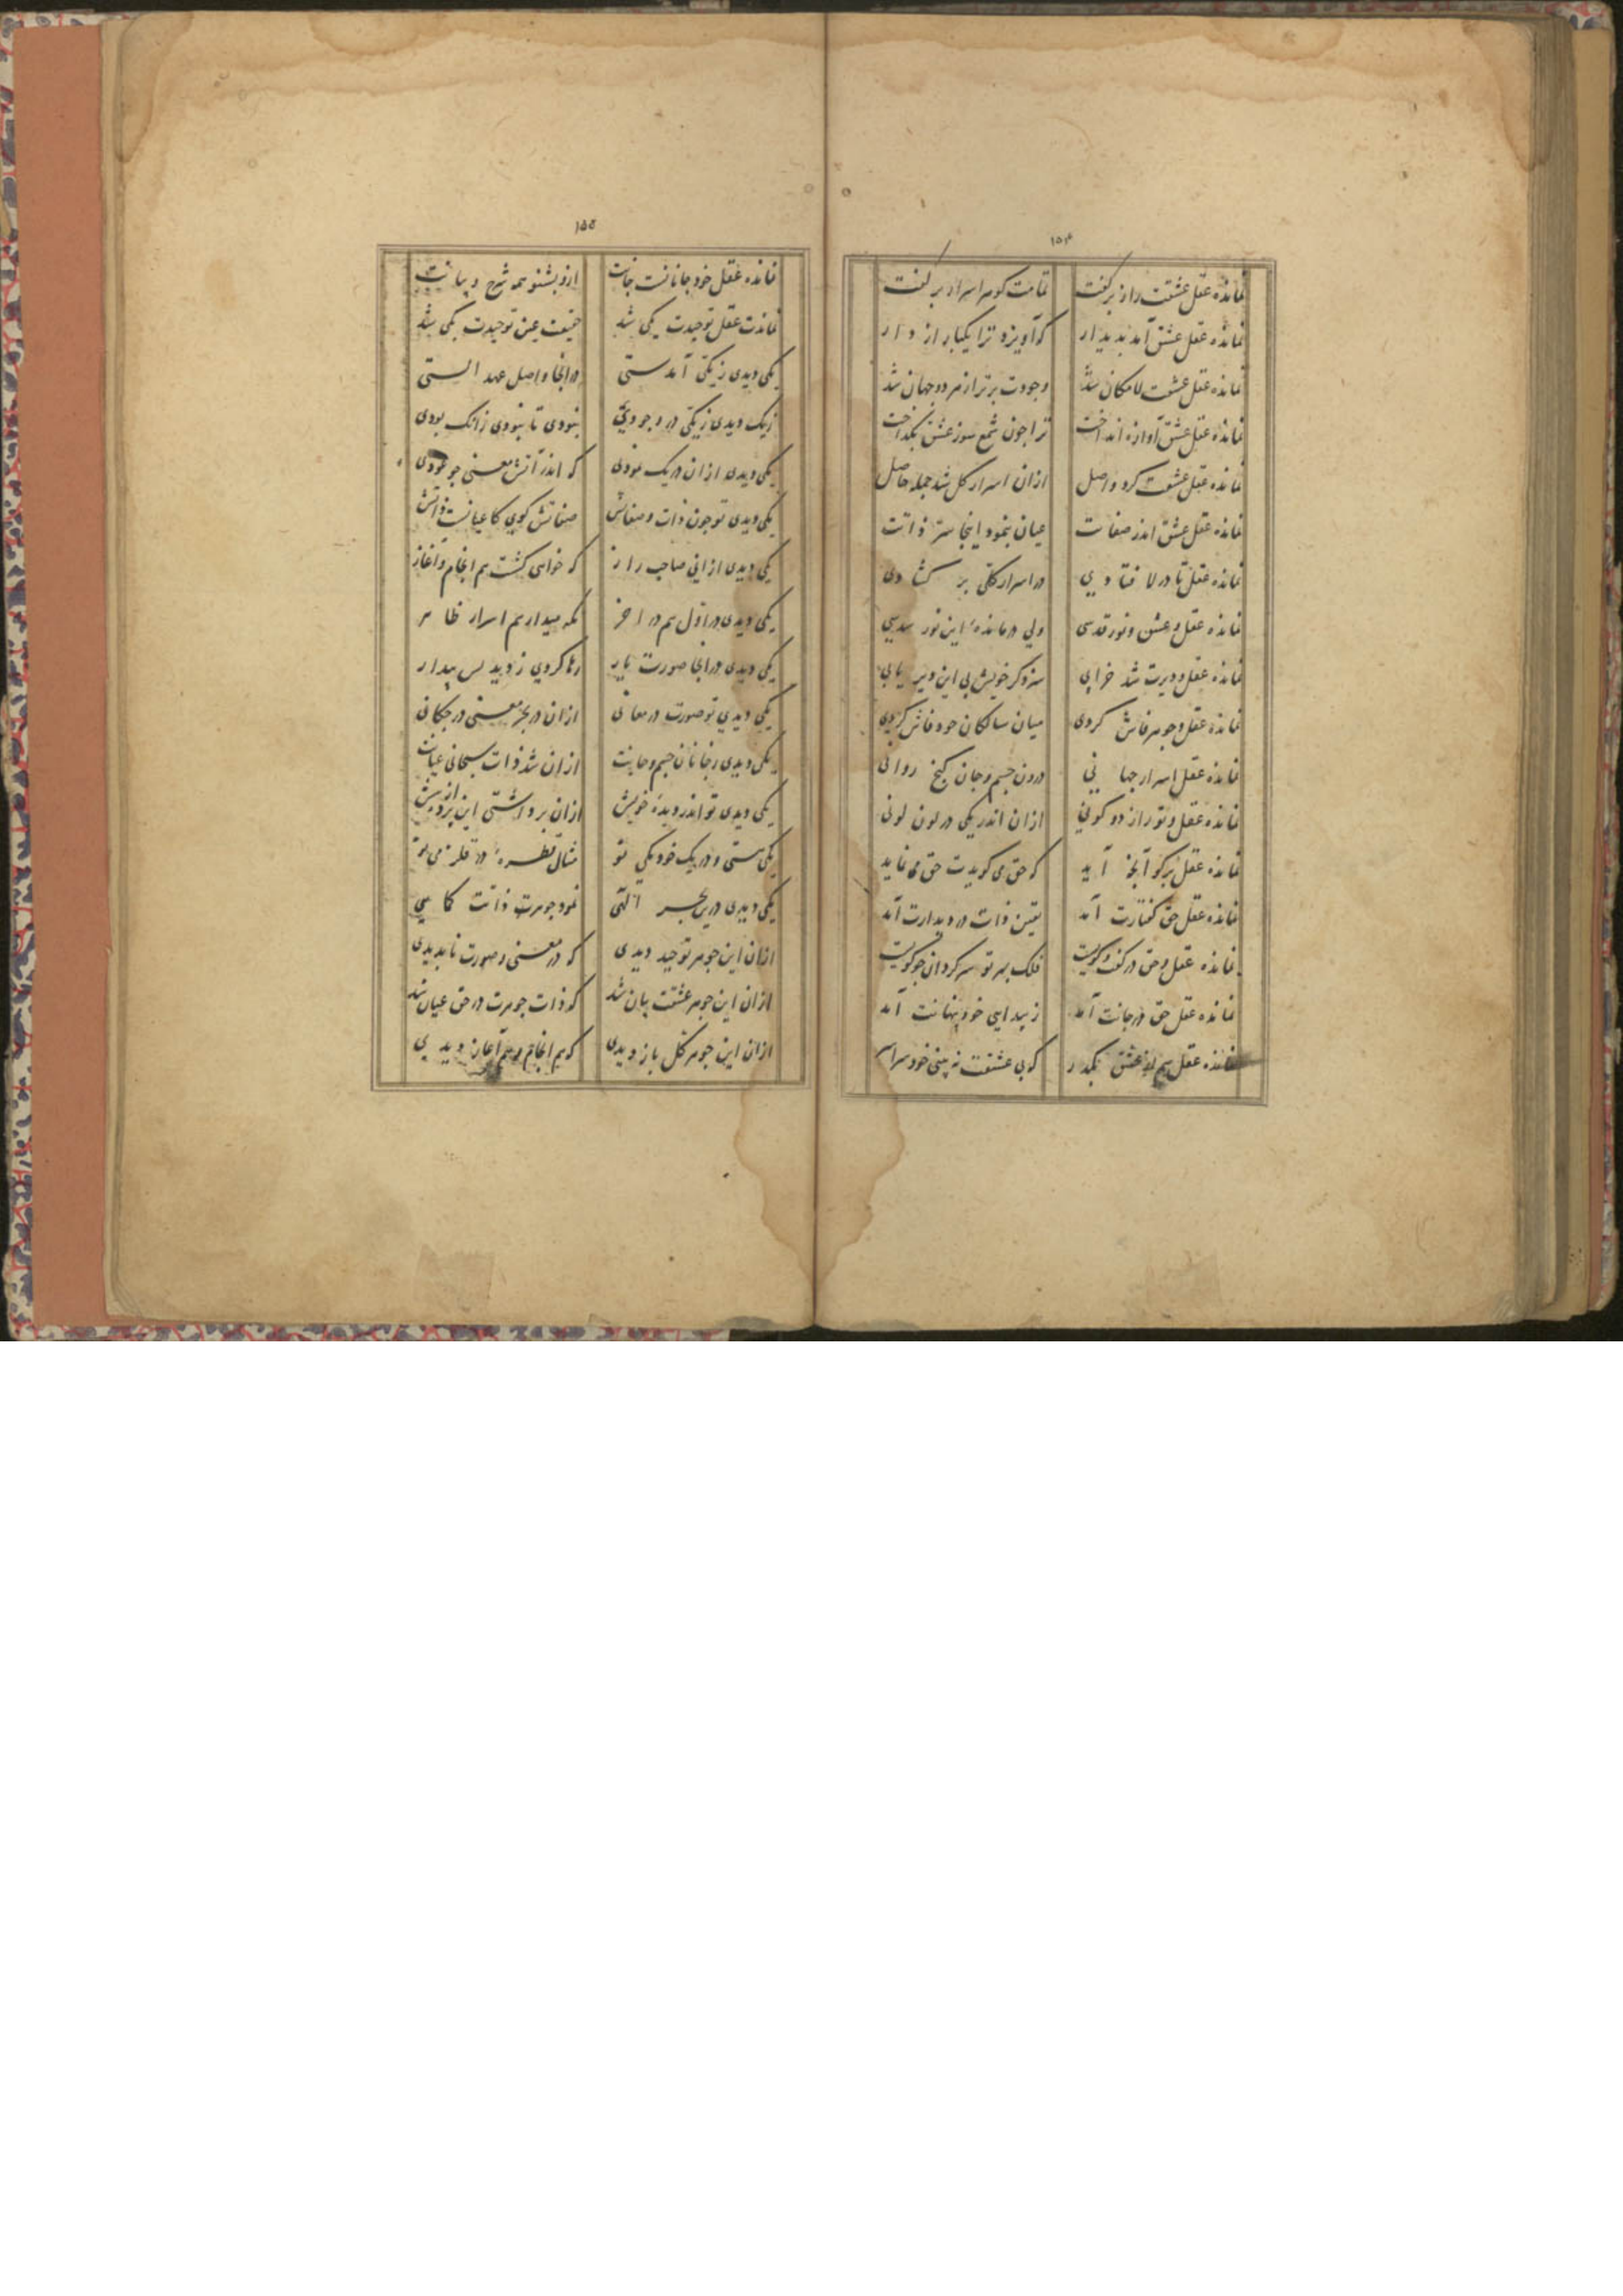 ۱۵۴
نمانده عقل عشقت راز برگفت تمامت گوهر اسرار برگفت
نمانده عقل عشق آمد پدیدار که آویزد ترا یکبار از دار
نمانده عقل عشقت لامکان شد وجودت برتر از هر دو جهان شد
نمانده عقل عشق آوازه انداخت ترا چون شمع سوز عشق بگداخت
نمانده عقل عشقت کرد واصل ازان اسرار کل شد جمله حاصل
نمانده عقل عشق اندر صفات عیان بنمود اینجا سرّ ذاتت
نمانده عقل تا در لا فتادی در اسرار کلی بر گشادی
نمانده عقل و عشق و نور قدسی ولی درمانده این نور
نمانده عقل و دیرت شد خرابی سزد گر خویش بی این دیر یابی
نمانده عقل و جوهر فاش کردی میان سالکان خود فاش کردی
نمانده عقل اسرار جهانی درون جسم و جان گنج روانی
نمانده عقل و تو راز دو کونی ازان اندر یکی در لون لونی
نمانده عقل برگو آنچه آید که حق می گویدت حق می نماید
نمانده عقل حق گفتارت آمد یقین ذات در دیدارت آمد
نمانده عقل و حق در گفت و گویت فلک بهر تو سرگردان چو گویت
نمانده عقل حق در جانت آمد ز پیدایی خود پنهانت آمد
نمانده عقل هم از عشق بگذر که بی عشقت نه بینی خود سراسر
۱۵۵
نمانده عقل خود جانانت جانت ازو بشنو همه شرح و بیانت
نماندت عقل توحیدت یکی شد حقیقت عین توحیدت یکی شد
یکی دیدی ز یکی آمدستی در اینجا واصل عهد الستی
ز یک دیدی ز یکی در وجودی نبودی تا نبودی زانک بودی
یکی دیدی ازان در یک نمودی که اندر آتش معنی چو عودی
یکی دیدی تو چون ذات و صفاتش صفاتش گوی کاعیانست ذاتش
یکی دیدی ازانی صاحب راز که خواهی گشت هم انجام و آغاز
یکی دیدی در اول هم در آخر نگه میدار هم اسرار ظاهر
یکی دیدی در اینجا صورت یار رها کردی ز دید پدیدار
یکی دیدی تو صورت در معانی ازان در بحر معنی در چکانی
یکی دیدی ز جانان جسم و جانت ازان شد ذات سبحانی عیانت
یکی دیدی تو اندر دیده خویش ازان برداشتی این پرده از پیش
یکی هستی و در یک خود یکی تو مثال قطره در قلزمی تو
یکی دیدی درین بحر الهی نمود جوهرت ذاتت کماهی
ازان این جوهر توحید دیدی که در معنی و صورت ناپدیدی
ازان این جوهر عشقت بیان شد که ذات جوهرت در حق عیان شد
ازان این جوهر کل باز دیدی که هم انجام و هم آغاز دیدی